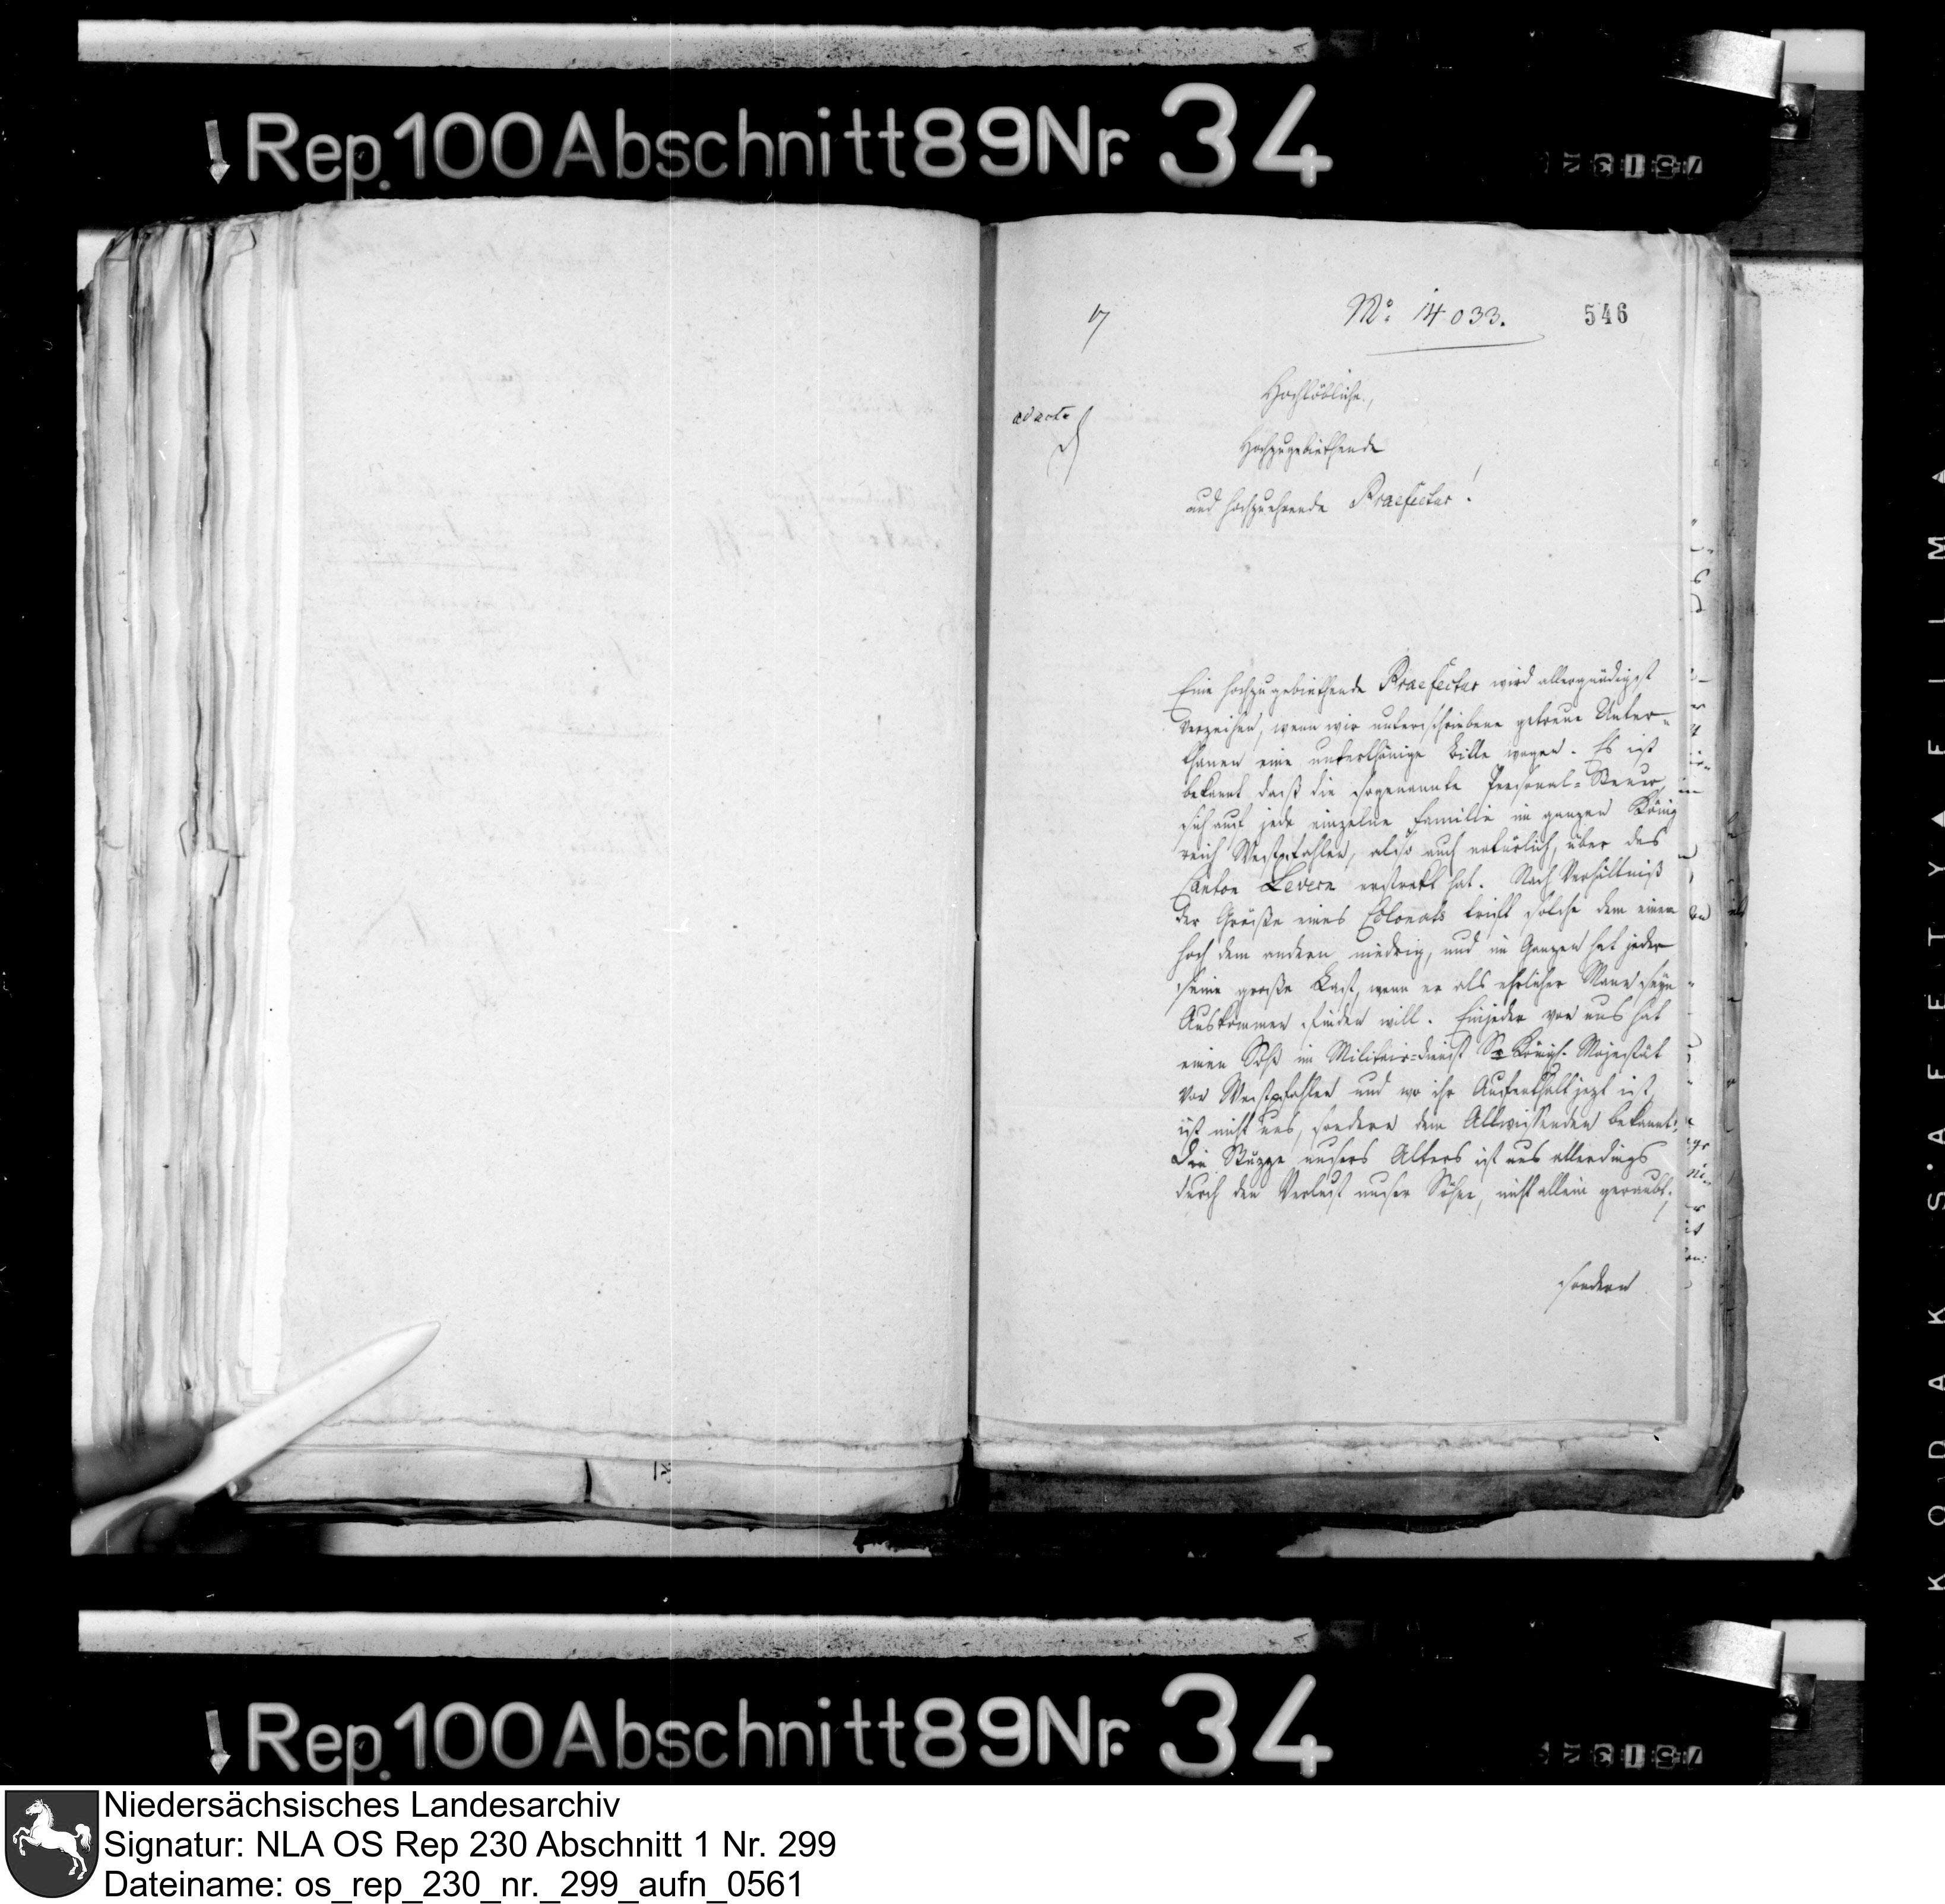 Rep. 100 Abschnitt 89 Nr. 34
No. 14033.
546
ad acta
Hochlöbliche,
Hochzugebiethende
und hochzuehrende Praefectur!
Eine hochzugebiethende Praefectur wird allergnädigst
verzeihen, wenn wir unterschriebene getreue Unter-
thanen eine unterthänige Bitte wagen. Es ist
bekannt daß die sogenannte Personal-Steuer
sich auf jede einzelne Familie im ganzen König
reich Westpfahlen, also auch natürlich, über das
Canton Levern erstrekt hat. Nach Verhältniß
der Größe eines Colonats trift solche dem einen
hoch dem andern niedrig, und im Ganzen hat jeder
seine große Last, wenn er als ehrlicher Mann seyn
Auskommen finden will. Einjeder von uns hat
einen Sohn im Militair-dienst Sr Königl. Majestät
von Westpfahlen und wo ihr Aufenthalt jezt ist,
ist nicht uns, sondern dem Allwissenden bekannt;
Die Stuzze unsers Alters ist uns allerdings
durch den Verlust unser Söhne, nicht allein geraubt,
sondern
KODAK SAFETY FILM
Rep. 100 Abschnitt 89 Nr. 34
Niedersächsisches Landesarchiv
Signatur: NLA OS Rep 230 Abschnitt 1 Nr. 299
Dateiname: os_rep_230_nr._299_aufn_0561